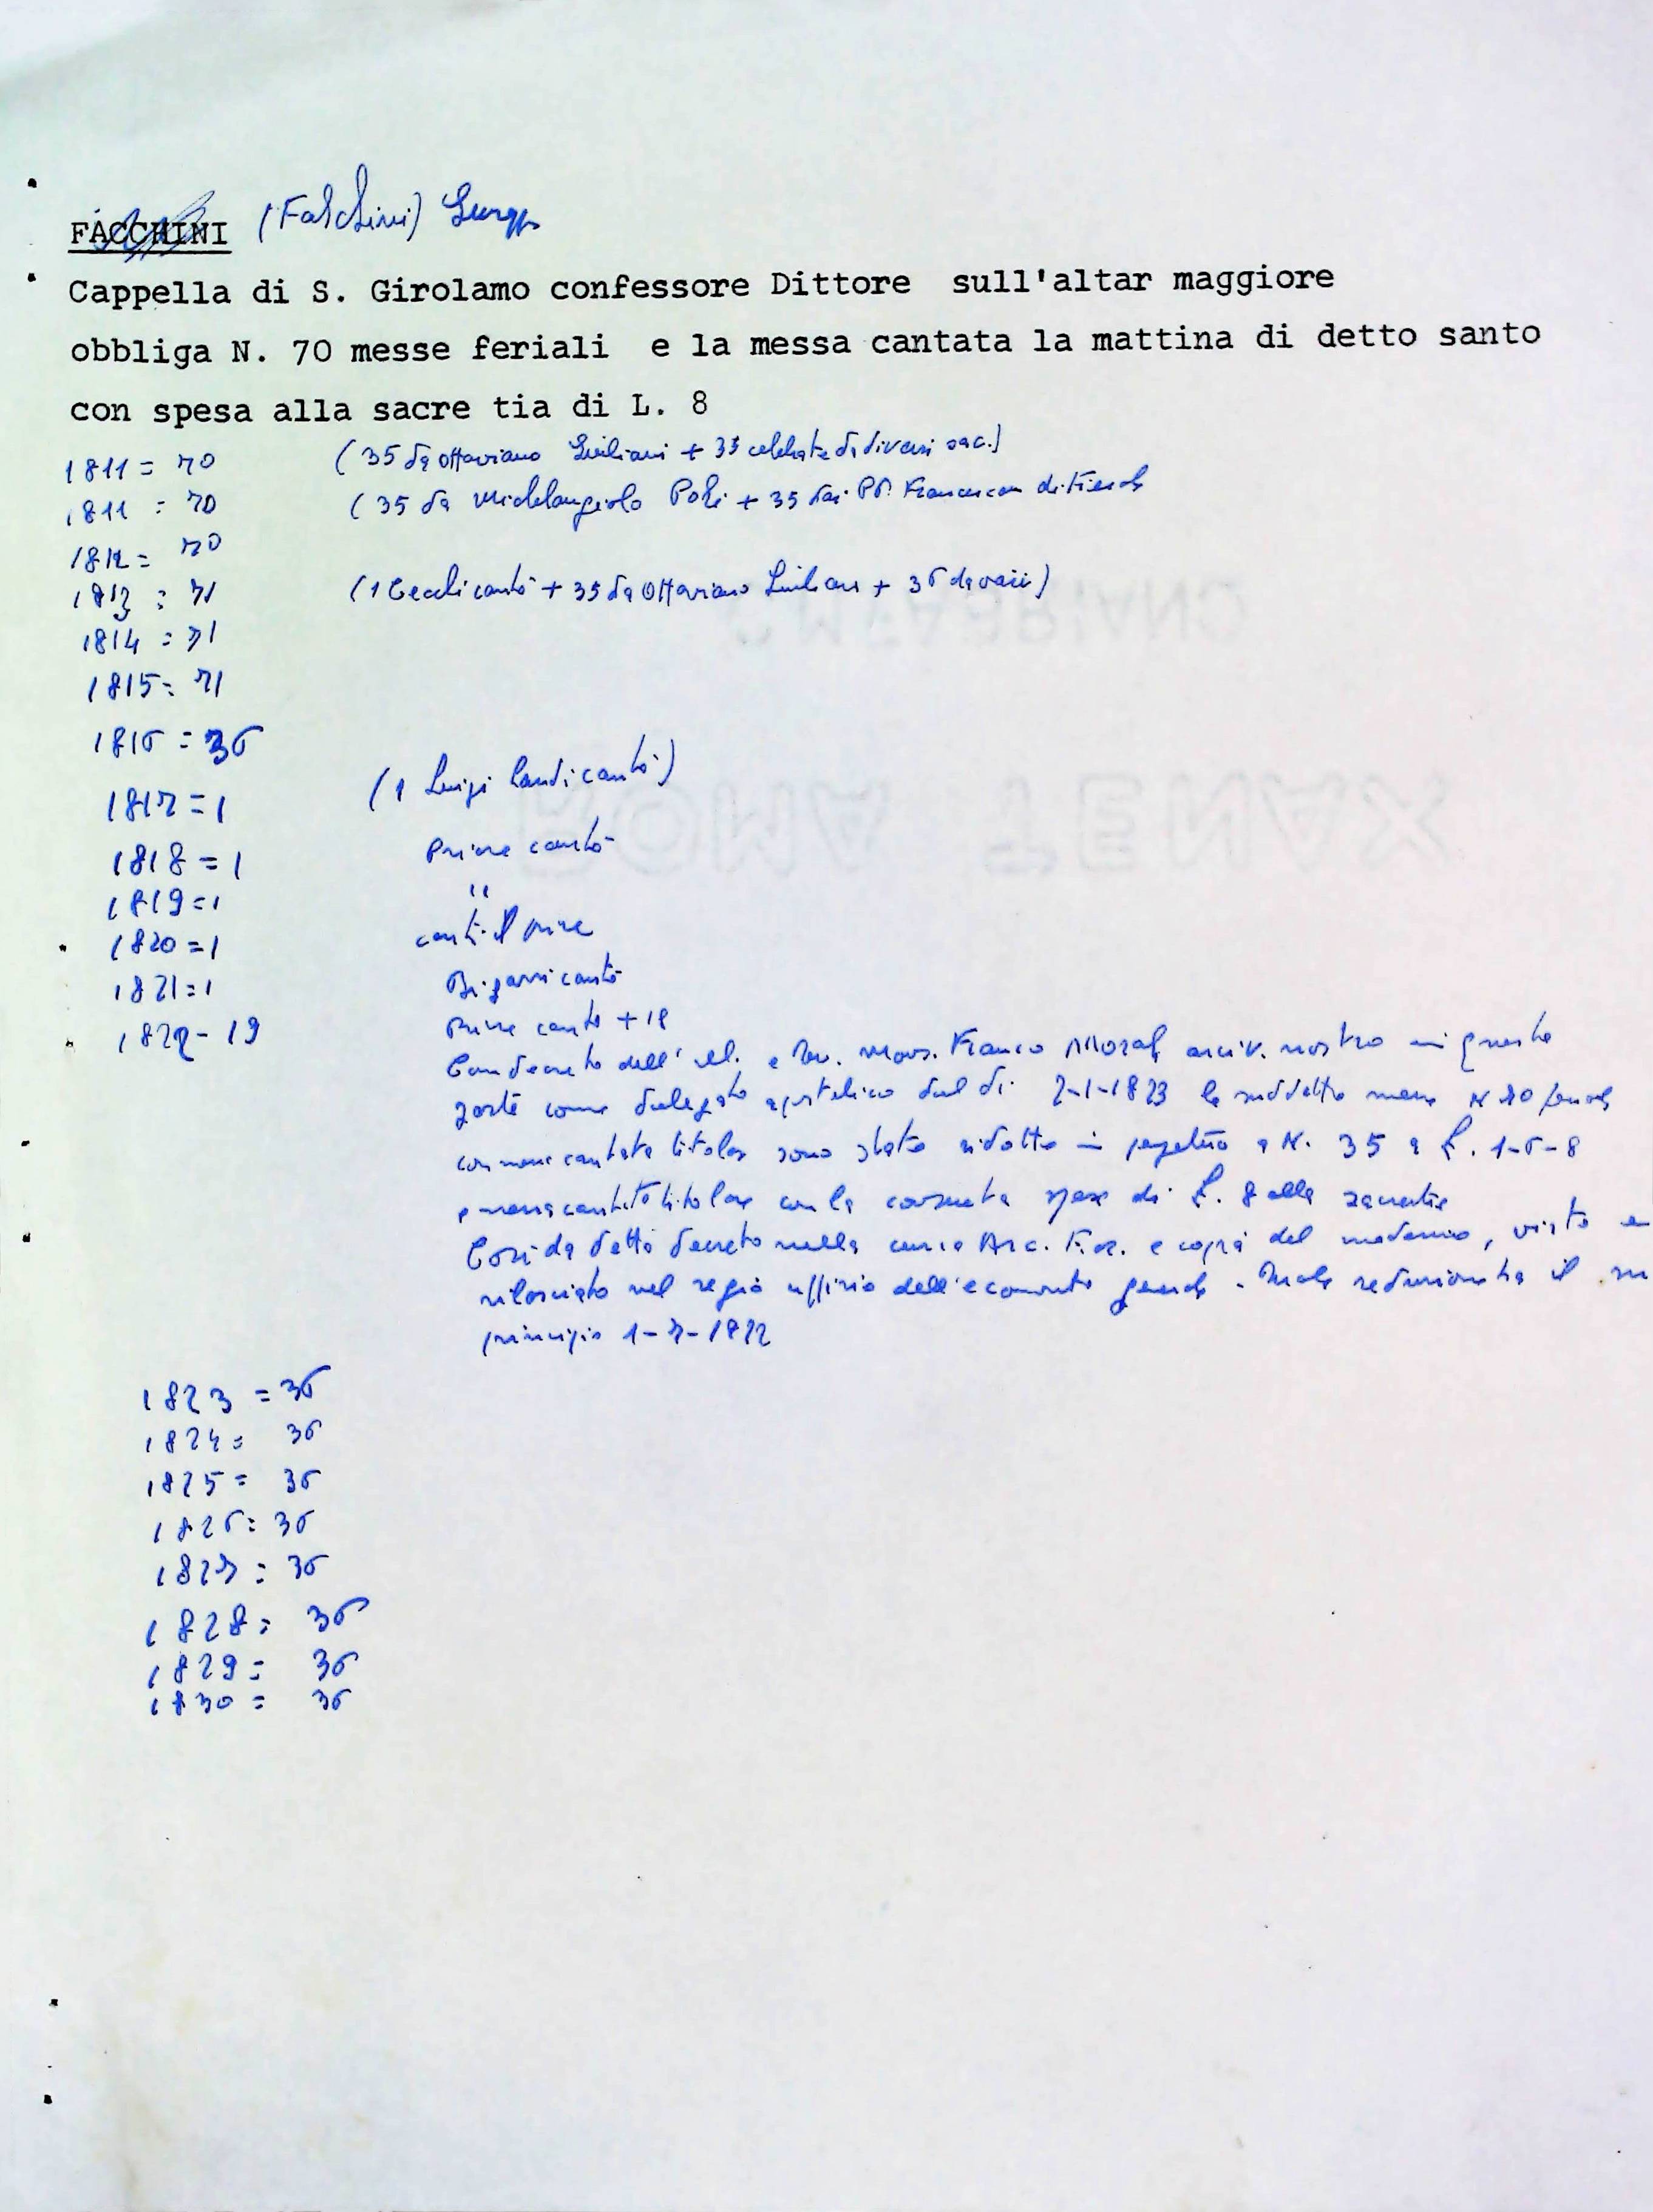 FACCHINI (Falchini)
Cappella di S. Girolamo confessore Dittore sull'altar maggiore
obbliga N. 70 messe feriali e la messa cantata la mattina di detto santo
con spesa alla sacre tia di L. 8
1811 = 70 (35 da Ottaviano Giuliani + 35 celebrate da diversi sac.)
1811 = 70 (35 da Michelangiolo Poli + 35 dai PP. Francescani di
1812 = 70
1813 = 71 (1 Cecchi cantò + 35 da Ottaviano Giuliani + 35 da varii)
1814 = 71
1815 = 71
1816 = 36
1817 = 1 (1 Luigi Landi cantò)
1818 = 1 cantò
1819 = 1 "
1820 = 1 cantò il
1821 = 1 cantò
1822 - 19 cantò + 18
Con decreto dell' Ill. e Rev. Mons. Franco Morali arciv. nostro in questa
parte come delegato apostolico dal di 2-1-1823 le suddette messe N 70 feriali
con messa cantata titolar sono state ridotte in perpetuo a N. 35 a £. 1-6-8
e messa cantata titolare con la consueta spesa di £. 8 alla sacrestia
Così da detto decreto nella curia Arc. Fior. e copia del medesimo, visto e
rilasciato nel regio uffizio dell'economato generale. Quale reduzione ha il su
principio 1-7-1822
1823 = 36
1824 = 36
1825 = 36
1826 = 36
1827 = 36
1828 = 36
1829 = 36
1830 = 36